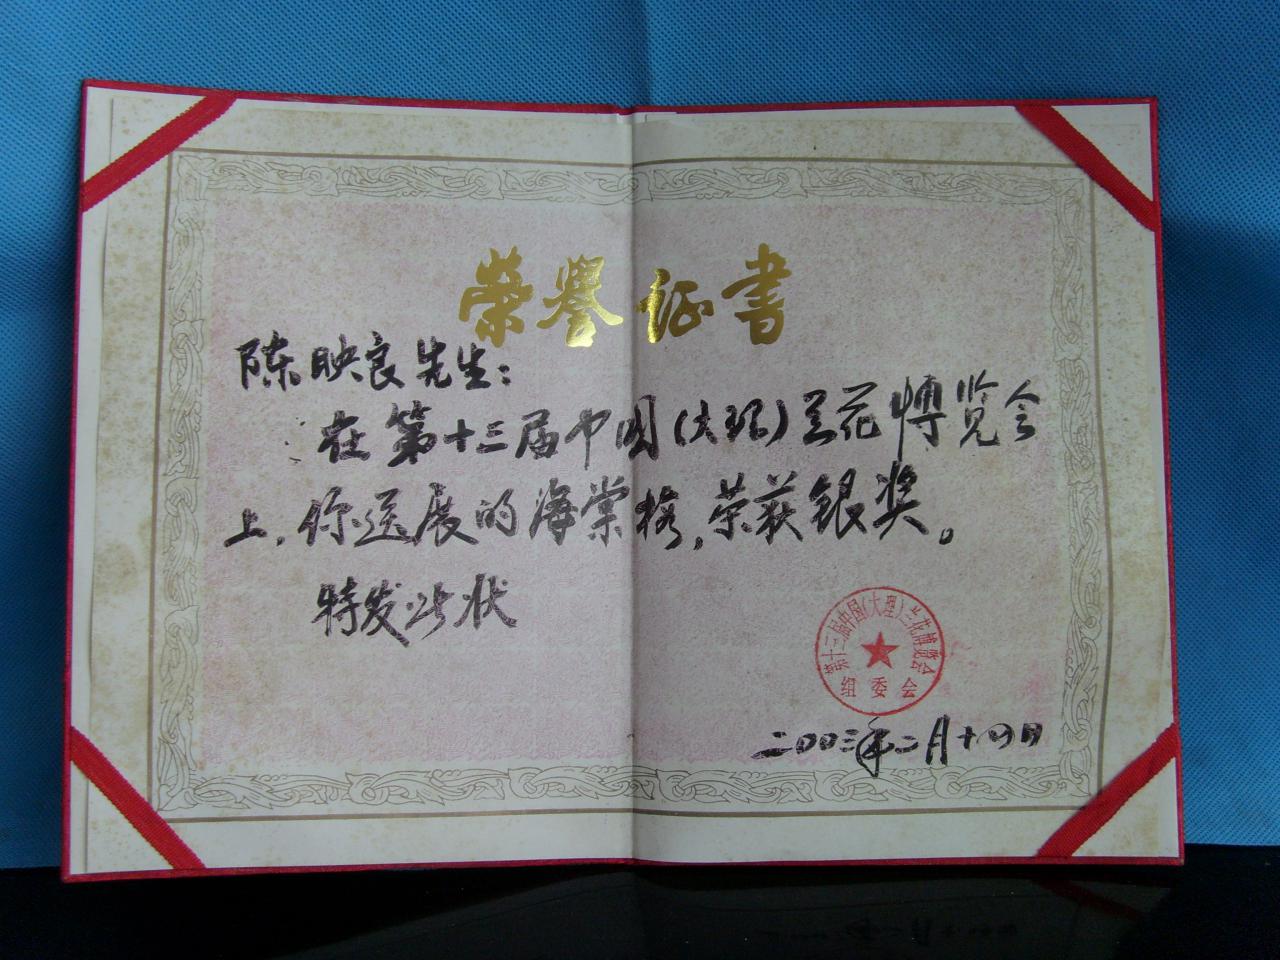 荣誉证书
陈映良先生：
在第十三届中国（大理）兰花博览会
上，你送展的海棠梅，荣获银奖。
特发此状
第十三届中国（大理）兰花博览会
组委会
二00三年二月十四日